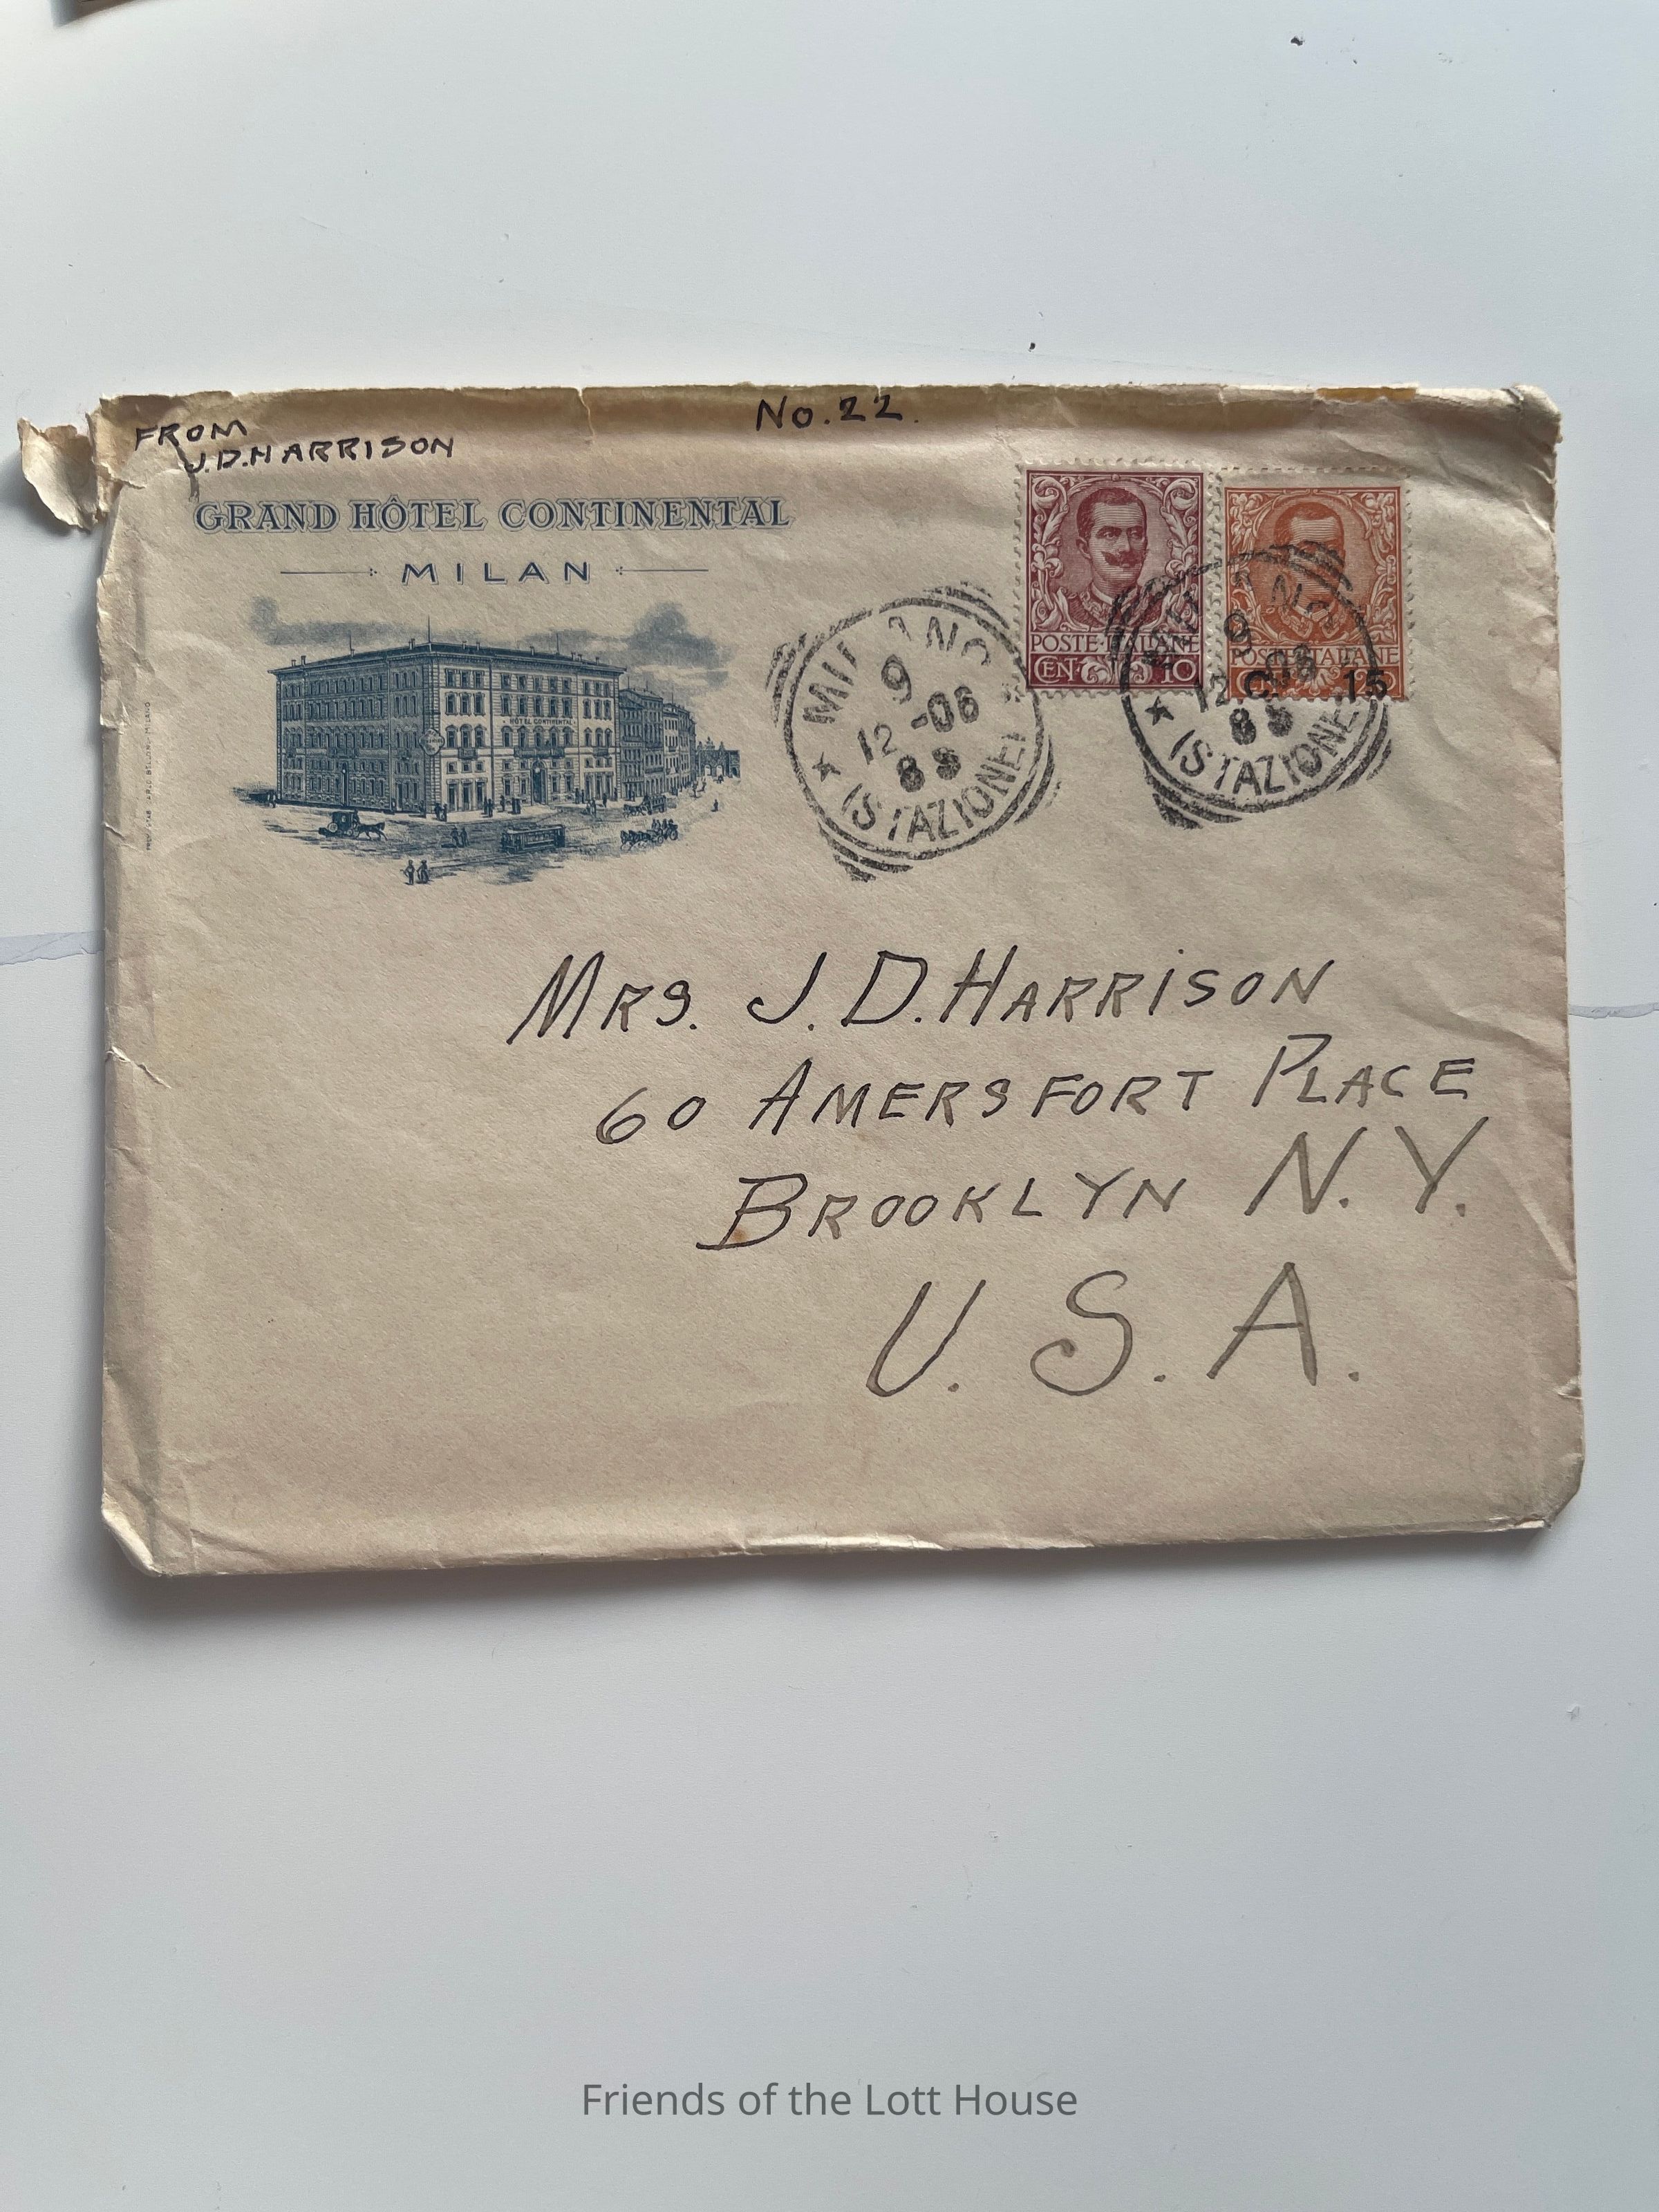 No. 22.
FROM
J. D. HARRISON
GRAND HÔTEL CONTINENTAL
MILAN
HÔTEL CONTINENTAL
POSTE ITALIANE
CEN. 10
POSTE ITALIANE
C. 15
MILANO
9
12 -06
8 S
(STAZIONE)
MILANO
9
12 -06
8 S
(STAZIONE)
MRS. J. D. HARRISON
60 AMERSFORT PLACE
BROOKLYN N. Y.
U. S. A.
Friends of the Lott House